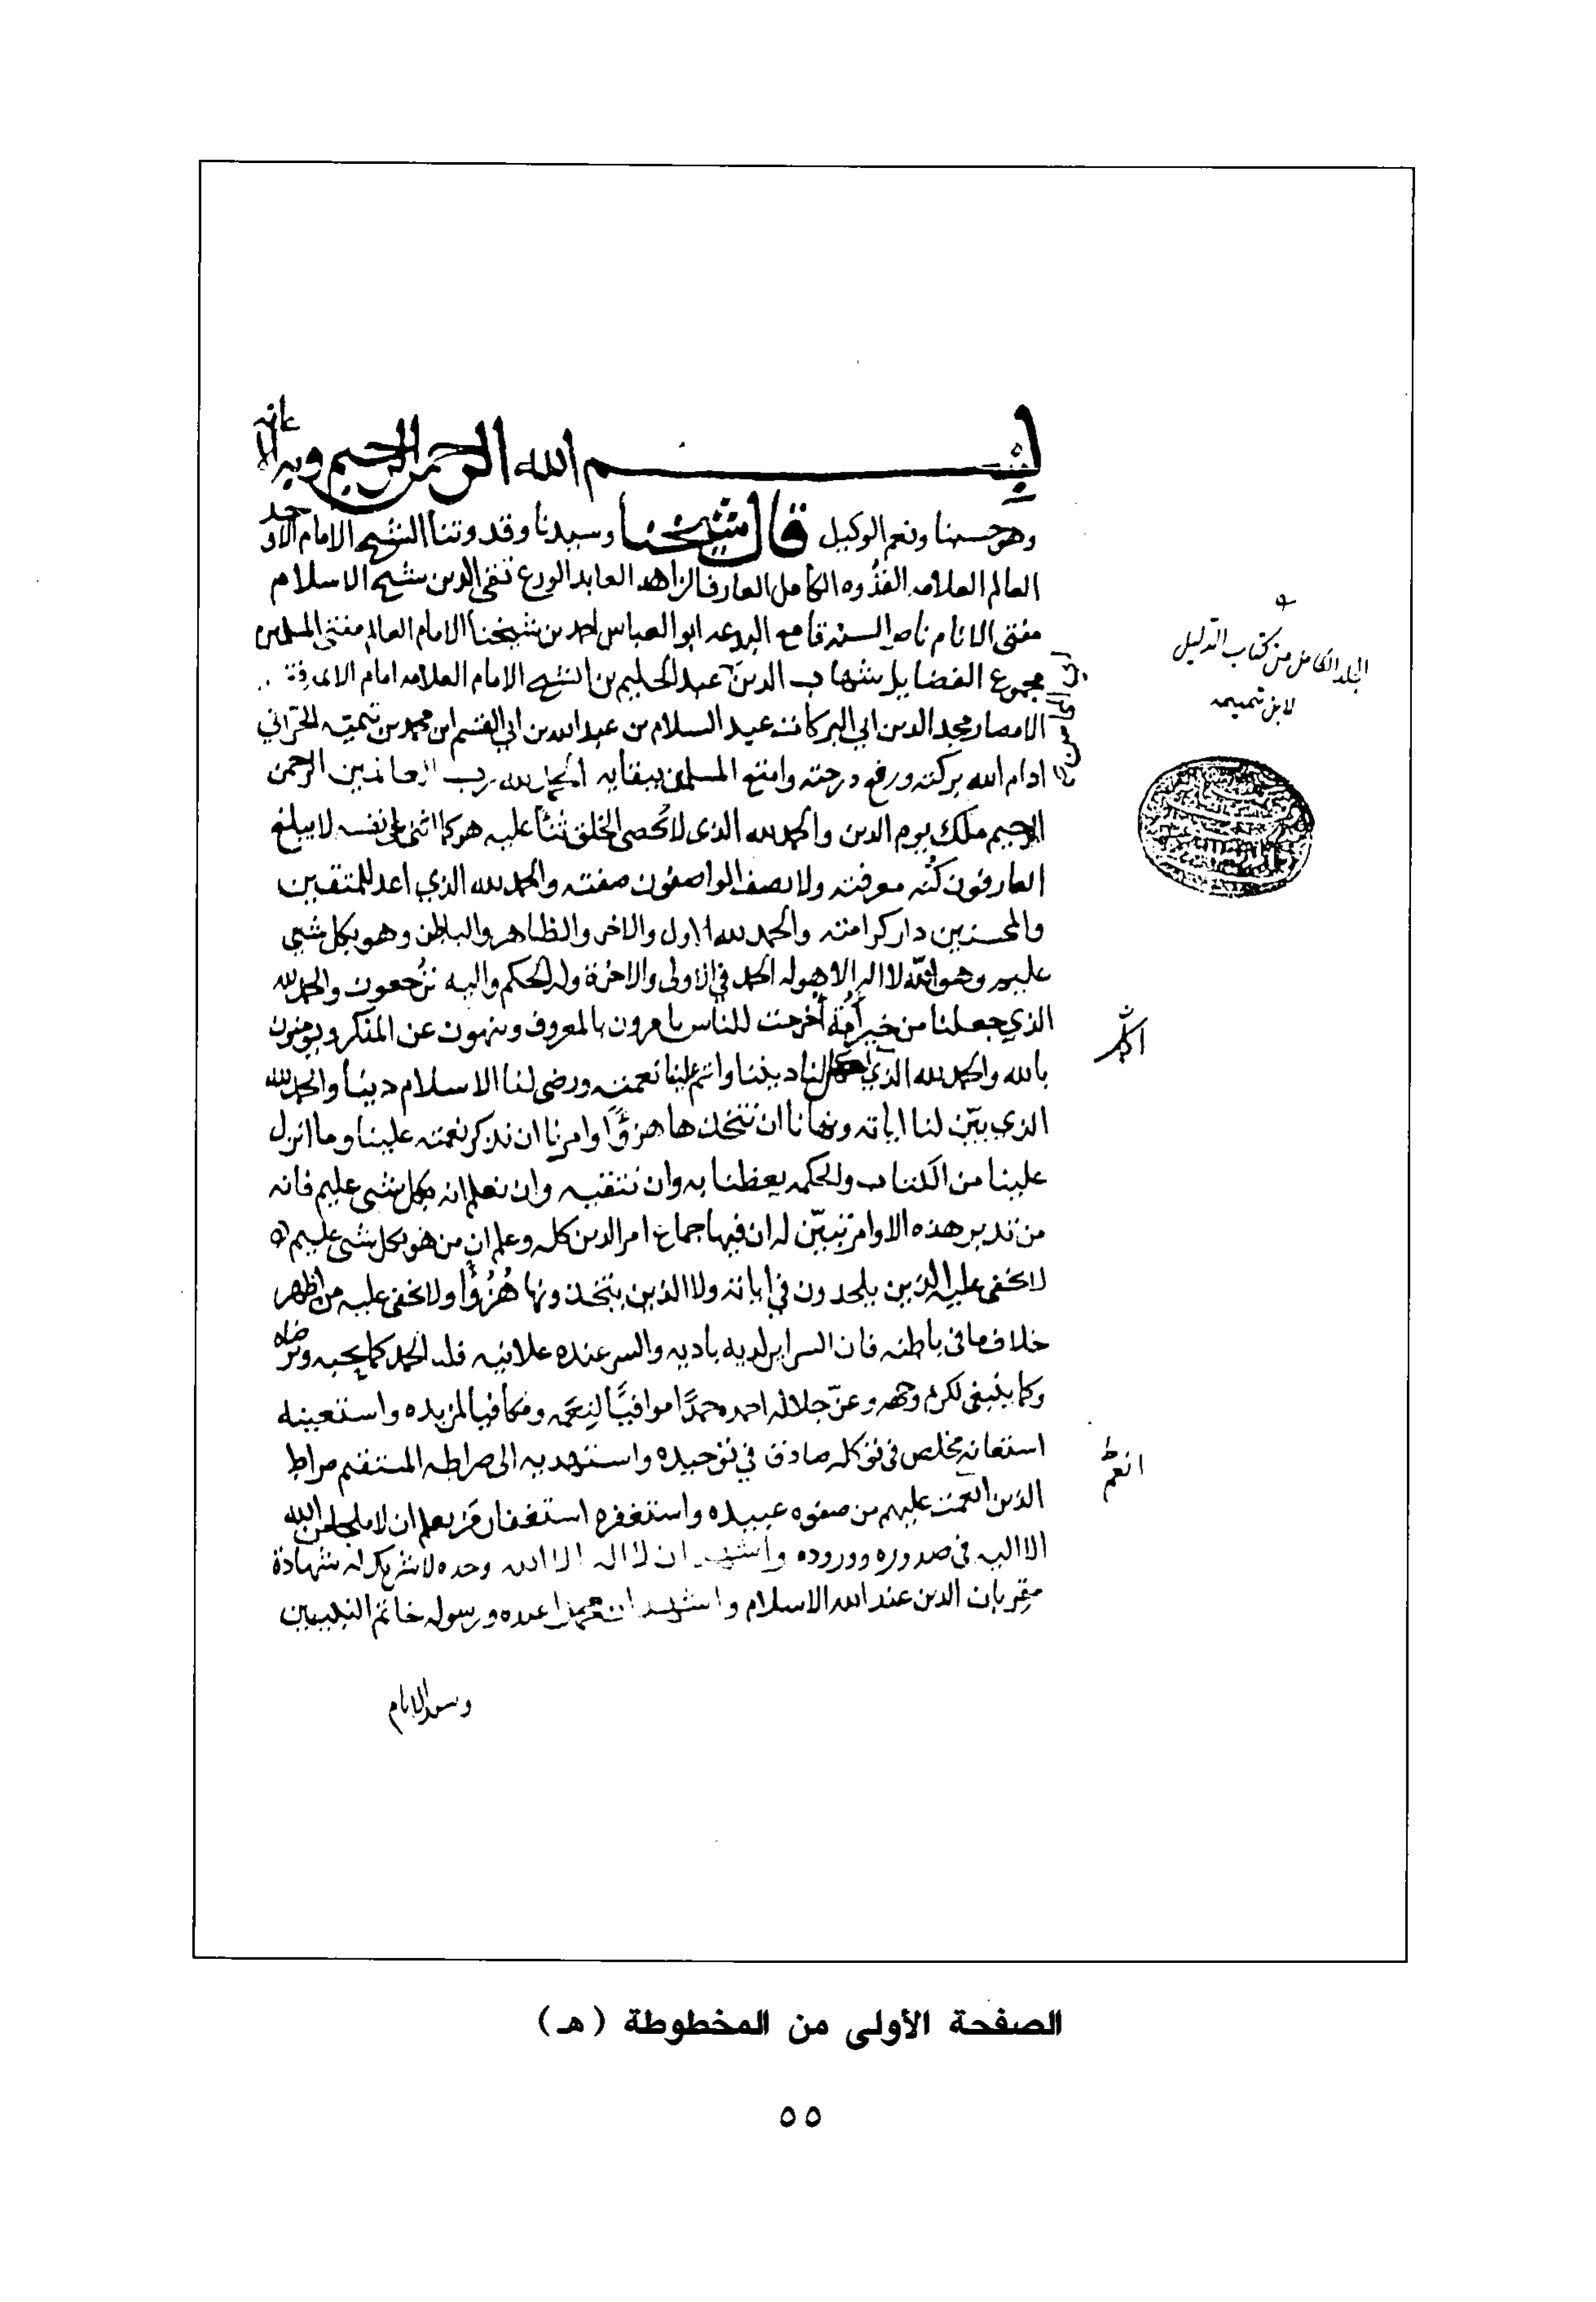 بسم الله الرحمن الرحيم وبه الاعانه
وهو حسبنا ونعم الوكيل قال شيخنا وسيدنا وقدوتنا الشيخ الامام الاوحد
العالم العلامه القدوه الكامل العارف الزاهد العابد الورع تقي الدين شيخ الاسلام
مفتى الانام ناصر السنه قامع البدعه ابو العباس احمد بن شيخنا الامام العالم مفتى المسلمين
مجموع الفضايل شهاب الدين عبد الحليم بن الشيخ الامام العلامه امام الايمه
الامصار مجد الدين ابي البركات عبد السلام بن عبد الله بن ابي القسم ابن محمد بن تيميه الحراني
ادام الله بركته ورفع درجته وامتع المسلمين ببقايه الحمد لله رب العالمين الرحمن
الرحيم ملك يوم الدين والحمد لله الذى لا تُحصى الخلق ثناً عليه هو كما اثنى على نفسه لا يبلغ
العارفون كُنه معرفته ولا يصف الواصفون صفته والحمد لله الذي اعد للمتقين
والمحسنين دار كرامته والحمد لله الاول والاخر والظاهر والباطن وهو بكل شيى
عليم وهو الله لا اله الا هو له الحمد في الاولى والاخرة وله الحكم واليه تُرجعون والحمد لله
الذي جعلنا من خير أُمّة أُخرجت للناس يامرون بالمعروف وينهون عن المنكر ويومنون
بالله والحمد لله الذي لنا ديننا واتم علينا نعمته ورضى لنا الاسلام دينا والحمد لله
الذي بيّن لنا اياته ونهانا ان نتخذها هزؤًا وامرنا ان نذكر نعمته علينا وما انزل
علينا من الكتاب والحكمه يعظنا به وان نتقيه وان نعلم انه بكل شى عليم فانه
من تدبر هذه الاوامر تبيّن له ان فيها جماع امر الدين كله وعلم ان من هو بكل شى عليم
لا يخفى عليه الذين يلحدون في اياته ولا الذين يتخذونها هُزُوًا ولا يخفى عليه من اظهر
خلاف ما فى باطنه فان السراير لديه باديه والسر عنده علانيه فله الحمد كما يحبه ويرضاه
وكما ينبغى لكرم وجهه وعزّ جلاله احمده حمدًا موافيًا لنِعَمه ومكافيا لمزيده واستعينه
استعانه مخلص فى توكله صادق في توحيده واستهديه الى صراطه المستقيم صراط
الذين انعمت عليهم من صفوه عبيده واستغفره استغفار من يعلم ان لا ملجا من الله
الا اليه فى صدوره ووروده واشهد ان لا اله الا الله وحده لا شريك له شهادة
مقِر بان الدين عند الله الاسلام واشهد ان محمدا عبده ورسوله خاتم النبيين
وسيد الانام
المجلد الكامل من كتاب الدليل
لابن تيميه
اكمل
انعم
الصفحة الأولى من المخطوطة (هـ)
٥٥